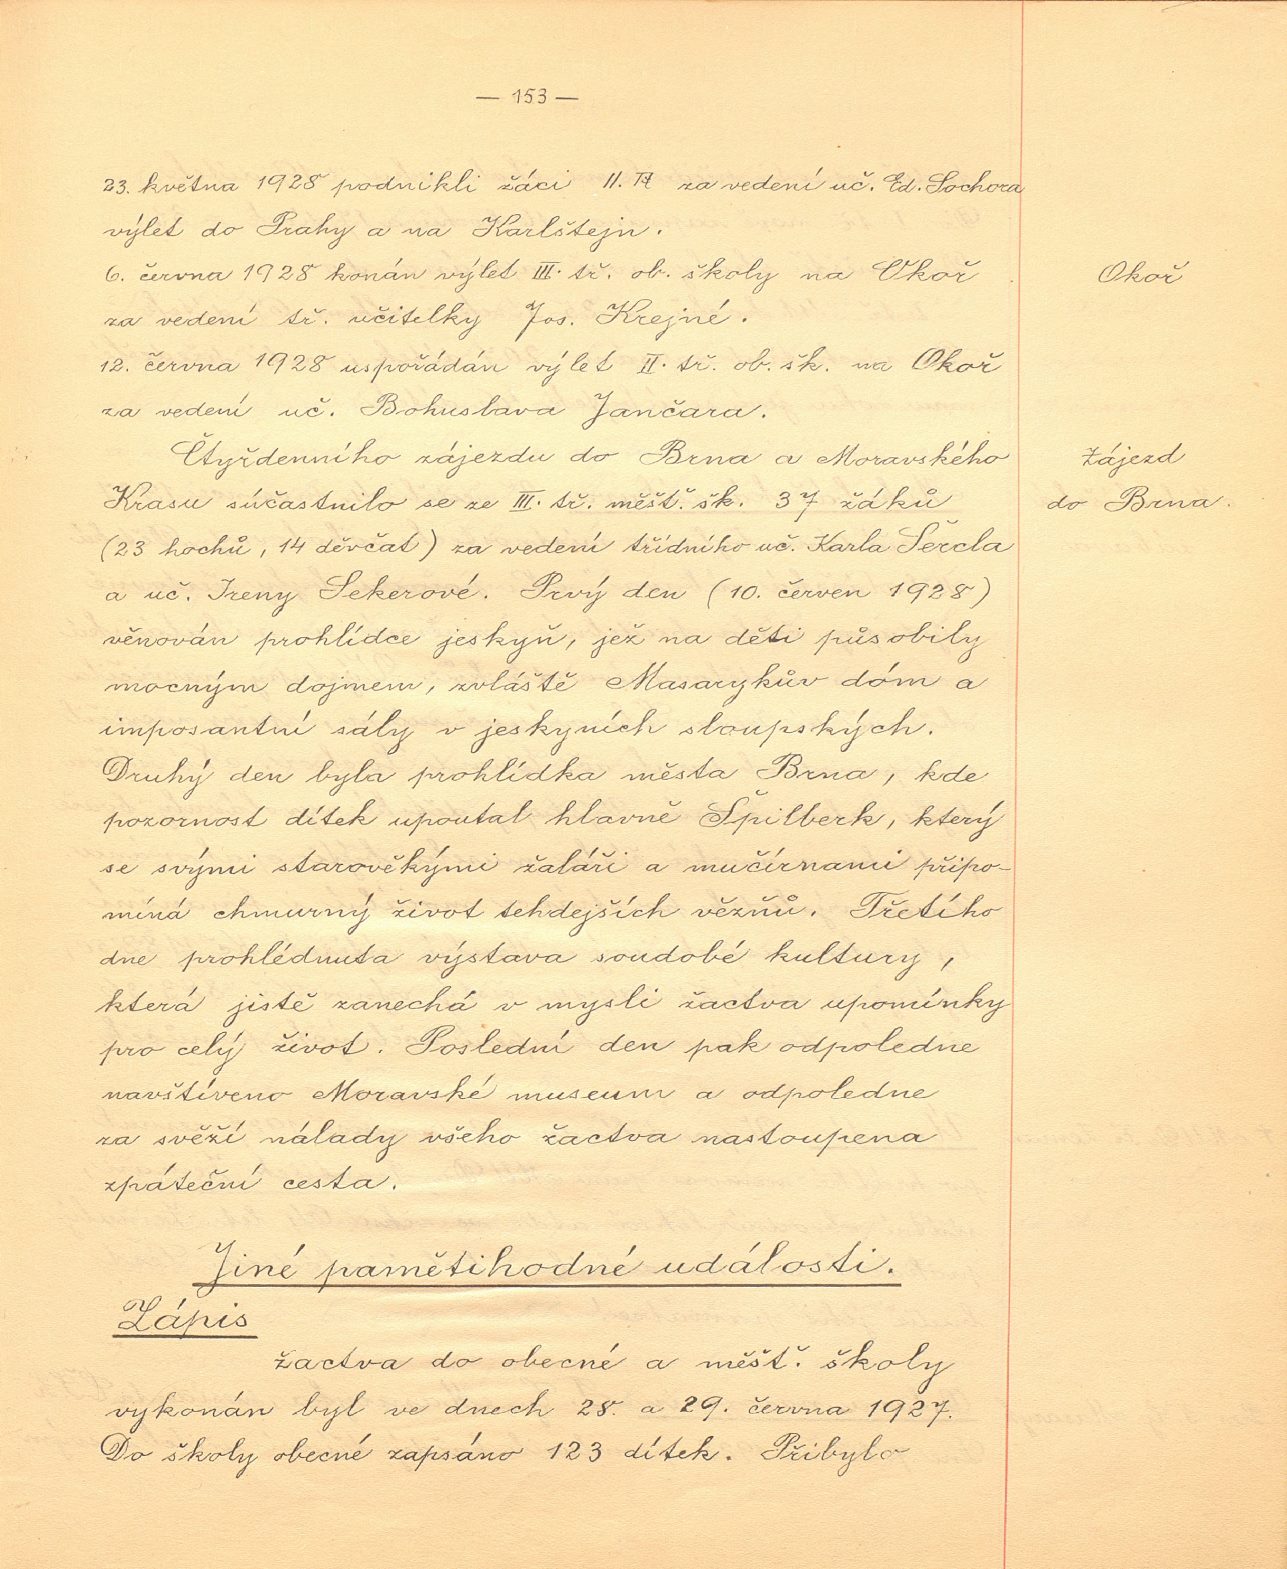 — 153 —
23. května 1928 podnikli žáci II. A za vedení uč. Ed. Sochora
výlet do Prahy a na Karlštejn.
6. června 1928 konán výlet III. tř. ob. školy na Okoř
Okoř
za vedení tř. učitelky Jos. Krejné.
12. června 1928 uspořádán výlet II. tř. ob. šk. na Okoř
za vedení uč. Bohuslava Jančara.
Čtyřdenního zájezdu do Brna a Moravského
Zájezd
Krasu súčastnilo se ze III. tř. měšť. šk. 37 žáků
do Brna.
(23 hochů, 14 děvčat) za vedení třídního uč. Karla Šercla
a uč. Ireny Sekerové. Prvý den (10. červen 1928)
věnován prohlídce jeskyň, jež na děti působily
mocným dojmem, zvláště Masarykův dóm a
imposantní sály v jeskyních sloupských.
Druhý den byla prohlídka města Brna, kde
pozornost dítek upoutal hlavně Špilberk, který
se svými starověkými žaláři a mučírnami připo-
míná chmurný život tehdejších vězňů. Třetího
dne prohlédnuta výstava soudobé kultury,
která jistě zanechá v mysli žactva upomínky
pro celý život. Poslední den pak odpoledne
navštíveno Moravské museum a odpoledne
za svěží nálady všeho žactva nastoupena
zpáteční cesta.
Jiné pamětihodné události.
Zápis
žactva do obecné a měšť. školy
vykonán byl ve dnech 28. a 29. června 1927.
Do školy obecné zapsáno 123 dítek. Přibylo